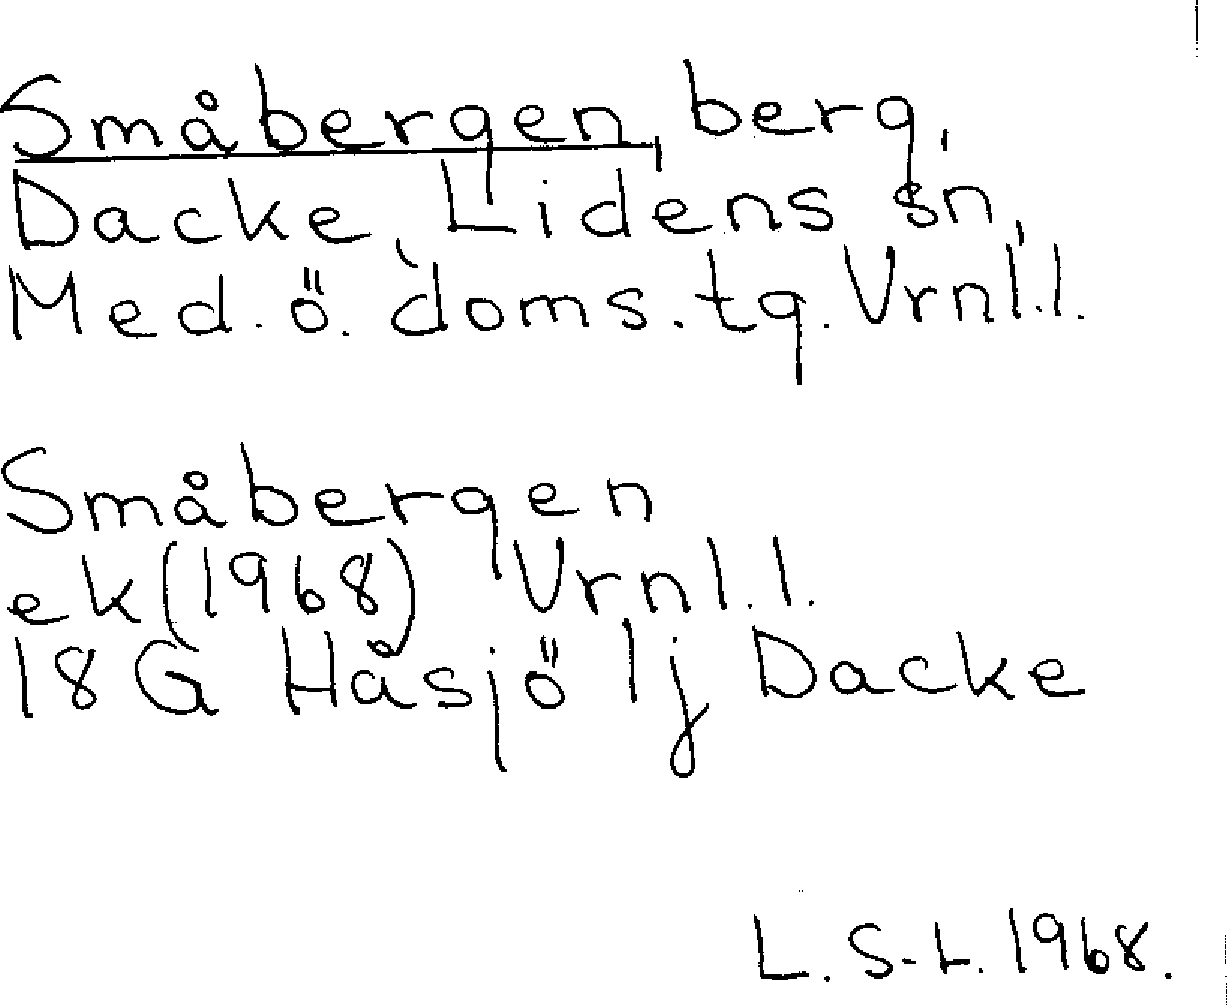 Småbergen, berg,
Dacke, Lidens sn,
Med. ö. doms. tg. Vrnl.l.
Småbergen
ek (1968) Vrnl.l.
18 G Håsjö 1j Dacke
L. S-L. 1968.